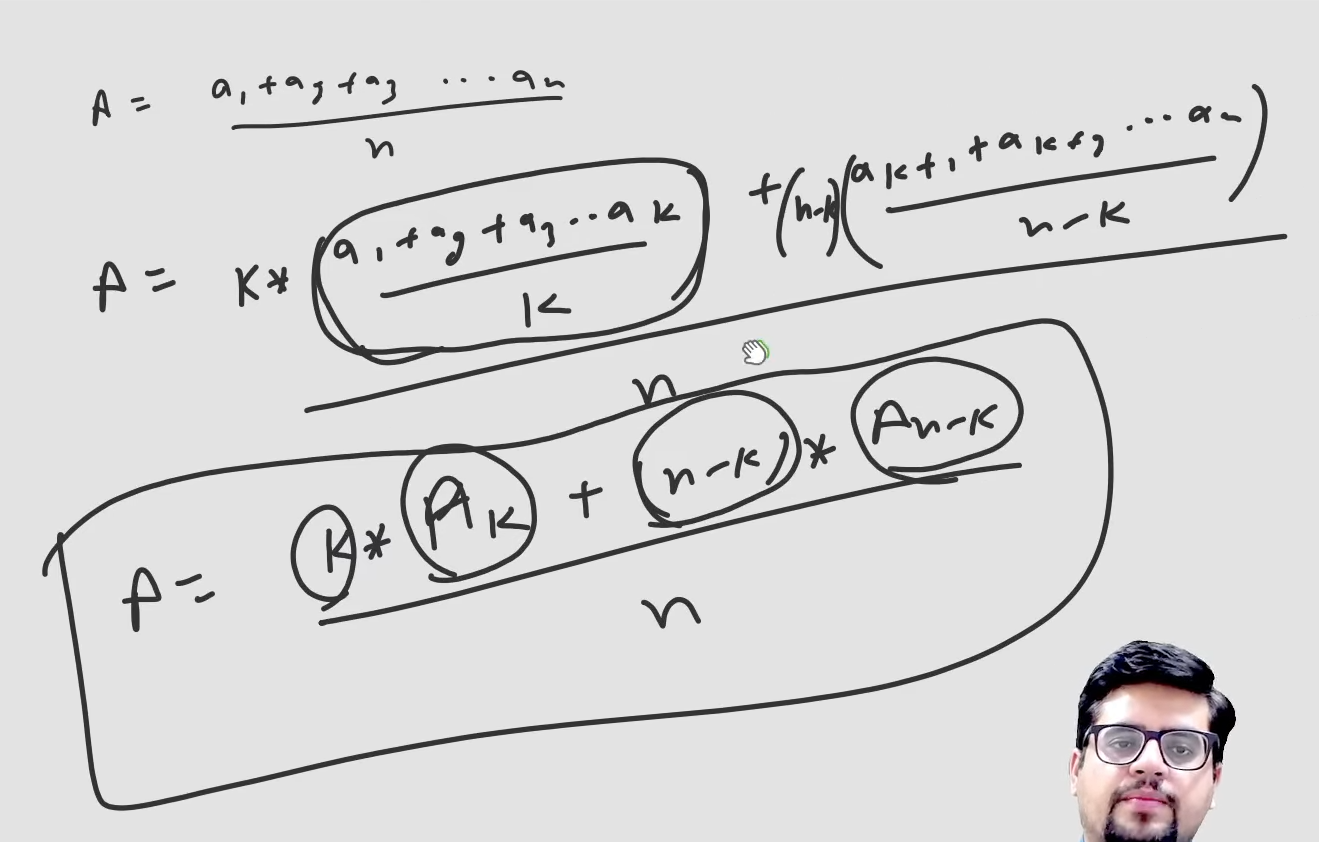 A = (a₁ + a₂ + a₃ ... aₙ) / n
A = K * ((a₁ + a₂ + a₃ .. a K) / K) + (n-k) ((a K+1 + a K+2 ... aₙ) / (n-K)) / n
A = (K * A K + (n-K) * A n-K) / n